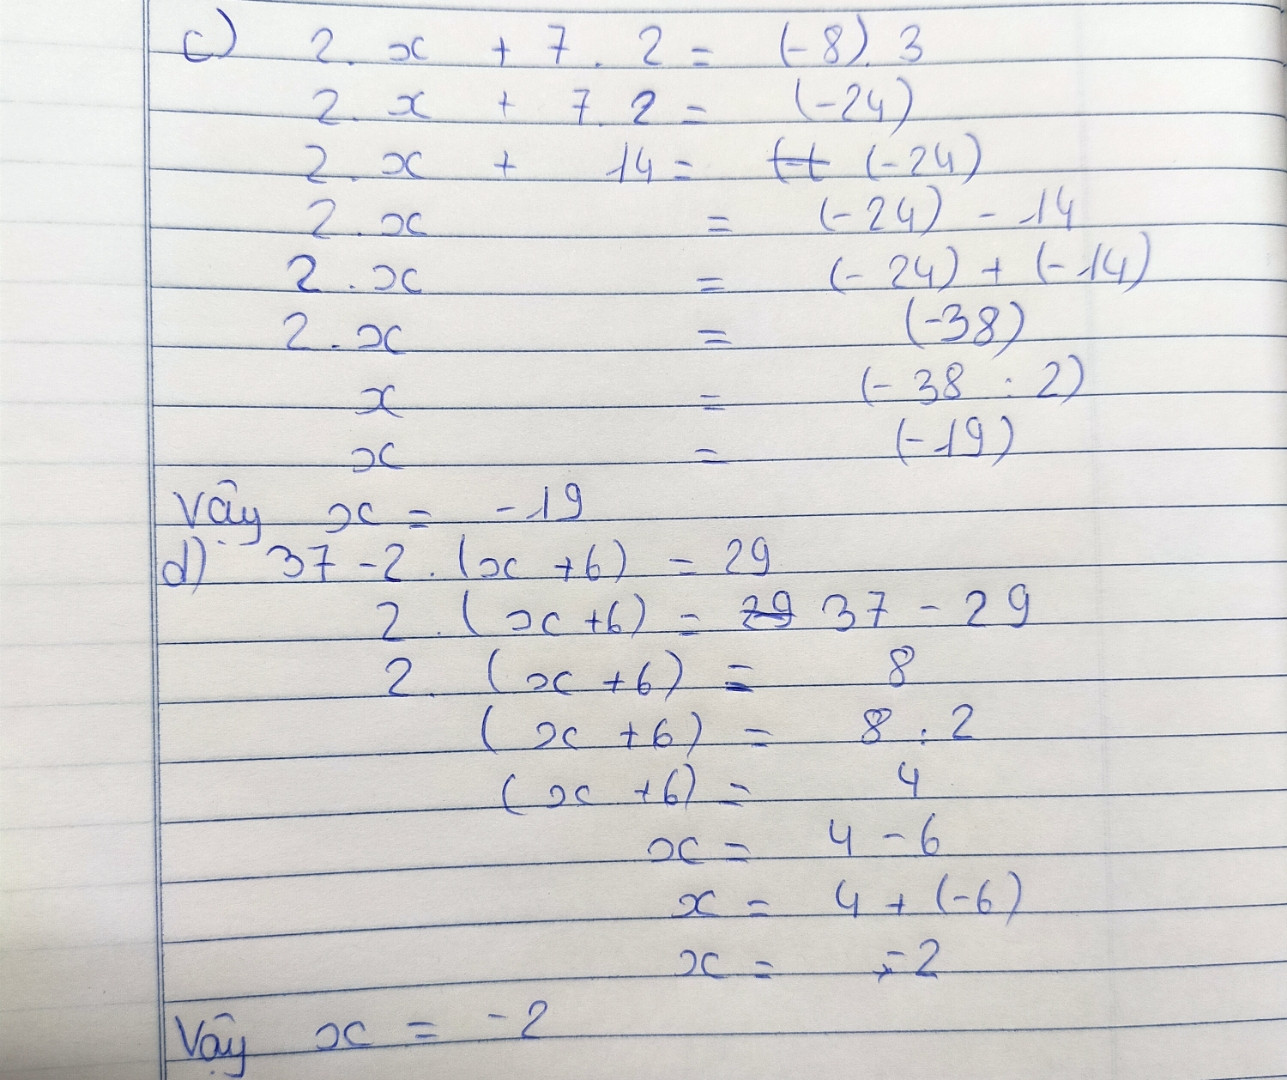 c) 2. x + 7. 2 = (-8). 3
2. x + 7. 2 = (-24)
2. x + 14 = (-24)
2. x = (-24) - 14
2. x = (-24) + (-14)
2. x = (-38)
x = (-38 : 2)
x = (-19)
Vậy x = -19
d) 37 - 2. (x + 6) = 29
2. (x + 6) = 29 37 - 29
2. (x + 6) = 8
(x + 6) = 8 : 2
(x + 6) = 4
x = 4 - 6
x = 4 + (-6)
x = -2
Vậy x = -2